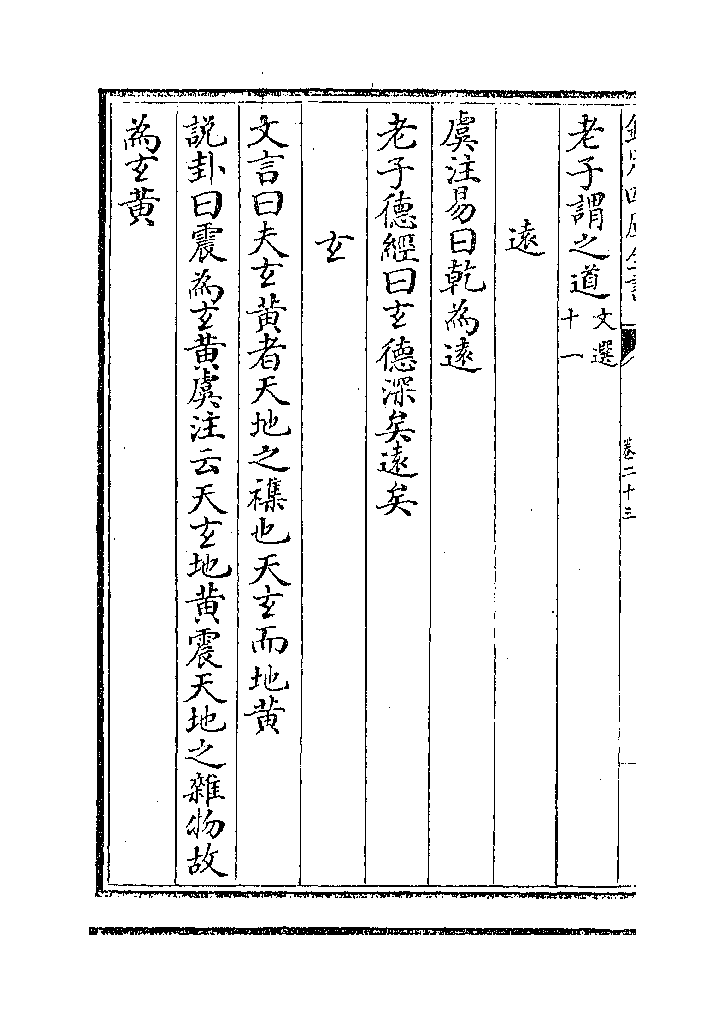 老子謂之道文選十一
遠
虞注易曰乾為遠
老子德經曰玄德深矣遠矣
玄
文言曰夫玄黄者天地之襍也天玄而地黄
説卦曰震為玄黄虞注云天玄地黄震天地之雜物故
為玄黄
卷二十三